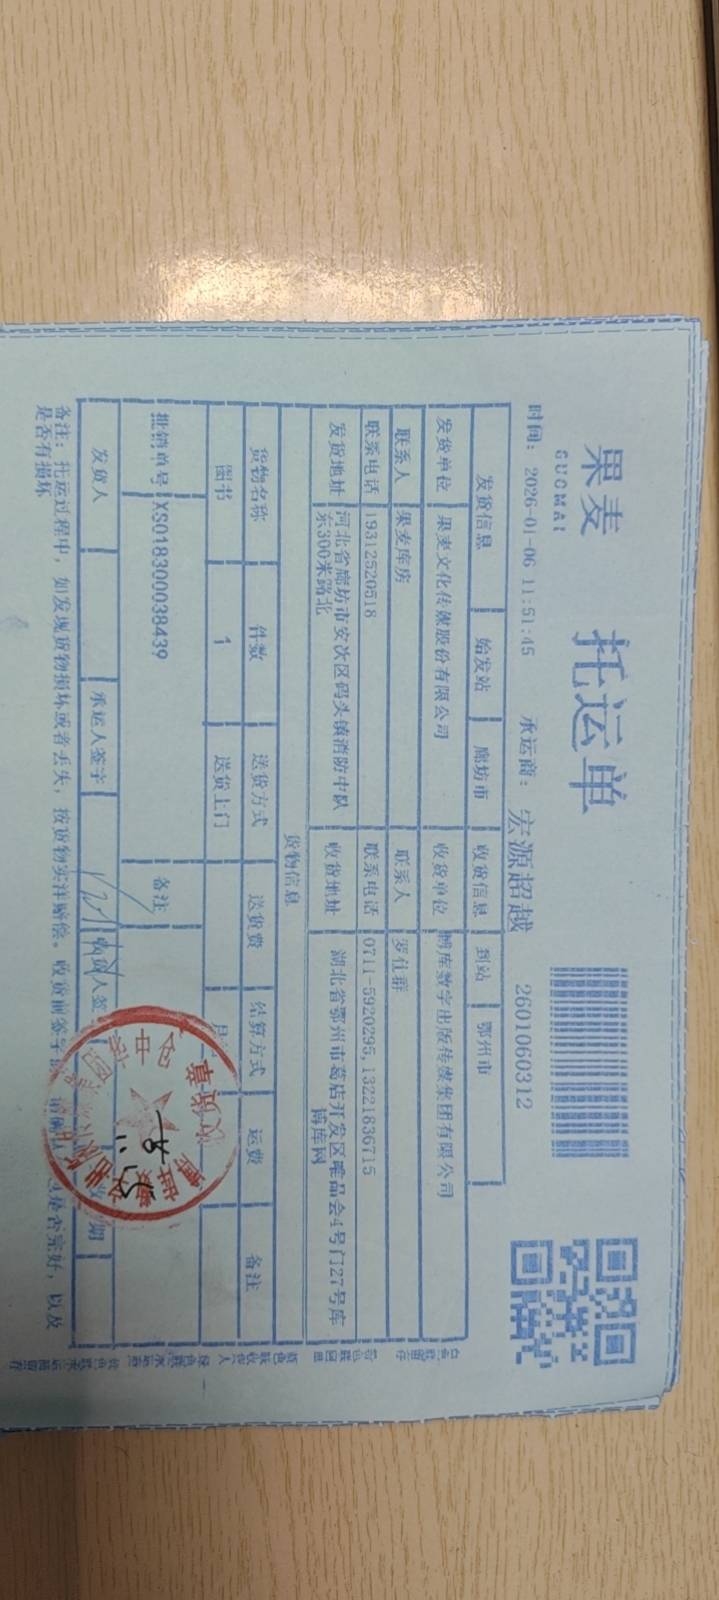 果麦
GUOMAI
托运单
时间：2026-01-06 11:51:45
承运商：宏源超越
2601060312
发货信息 始发站 廊坊市 收货信息 到站 鄂州市
发货单位 果麦文化传媒股份有限公司 收货单位 博库数字出版传媒集团有限公司
联系人 果麦库房 联系人 罗仕群
联系电话 19312520518 联系电话 0711-5920295,13221836715
发货地址 河北省廊坊市安次区码头镇消防中队
东300米路北
收货地址 湖北省鄂州市葛店开发区唯品会4号门27号库
博库网
货物信息
货物名称 件数 送货方式 送货费 结算方式 运费 备注
图书 1 送货上门
批销单号 XS018300038439 备注
发货人 承运人签字
备注：托运过程中，如发现货物损坏或者丢失，按货物实洋赔偿。收货前签字
是否完好，以及
是否有损坏
收货章